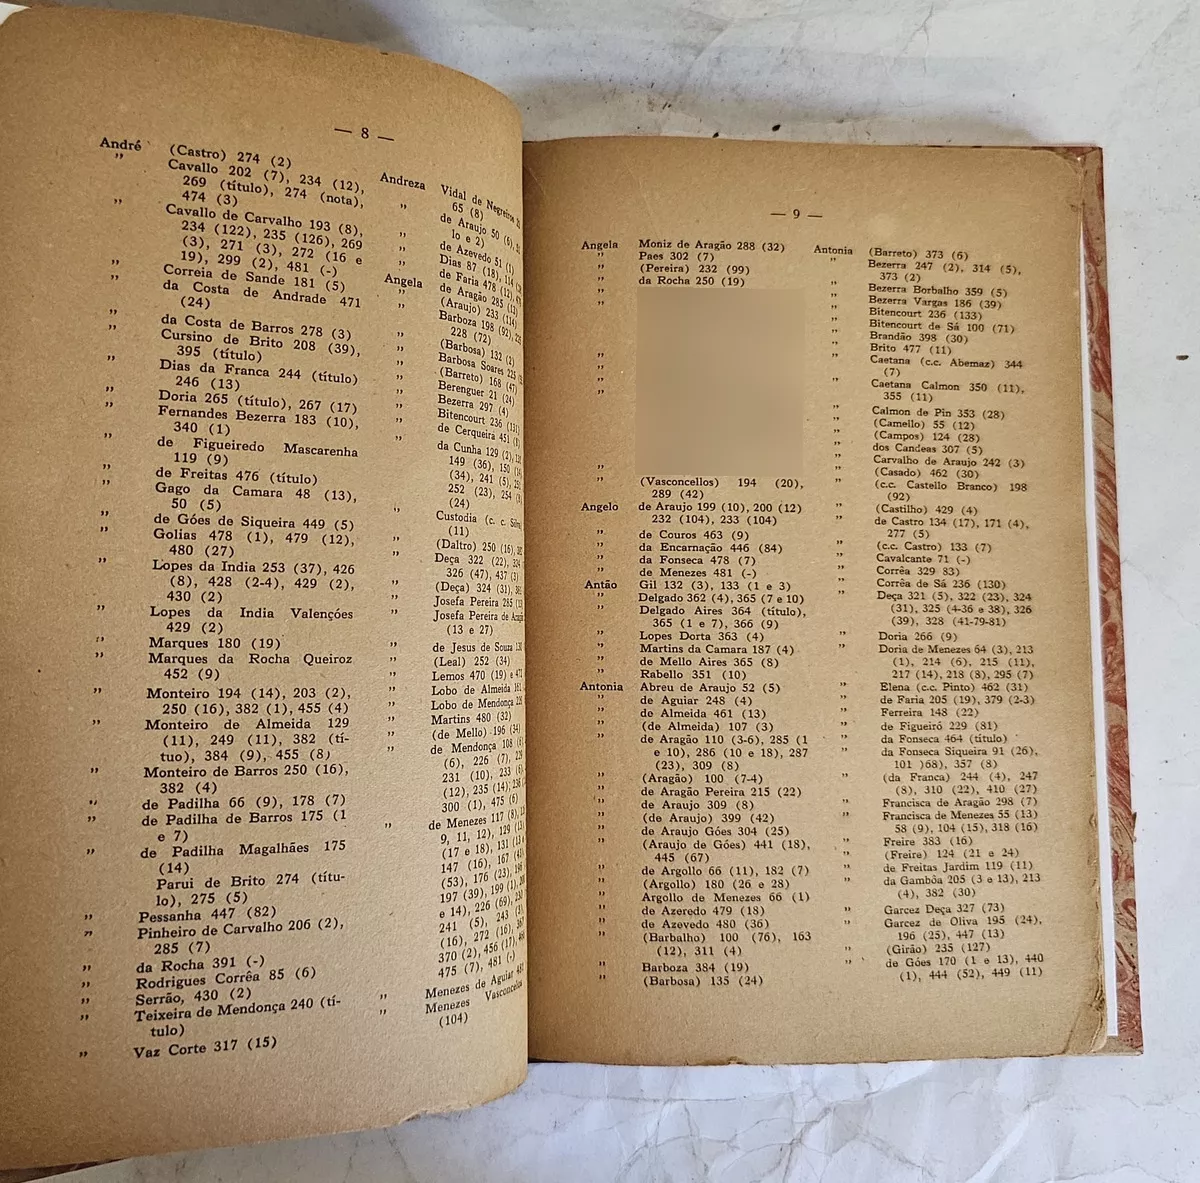 — 8 —
André (Castro) 274 (2)
” Cavallo 202 (7), 234 (12),
269 (título), 274 (nota),
474 (3)
” Cavallo de Carvalho 193 (8),
234 (122), 235 (126), 269
(3), 271 (3), 272 (16 e
19), 299 (2), 481 (-)
” Correia de Sande 181 (5)
” da Costa de Andrade 471
(24)
” da Costa de Barros 278 (3)
” Cursino de Brito 208 (39),
395 (título)
” Dias da Franca 244 (título)
246 (13)
” Doria 265 (título), 267 (17)
” Fernandes Bezerra 183 (10),
340 (1)
” de Figueiredo Mascarenha
119 (9)
” de Freitas 476 (título)
” Gago da Camara 48 (13),
50 (5)
” de Góes de Siqueira 449 (5)
” Golias 478 (1), 479 (12),
480 (27)
” Lopes da India 253 (37), 426
(8), 428 (2-4), 429 (2),
430 (2)
” Lopes da India Valençóes
429 (2)
” Marques 180 (19)
” Marques da Rocha Queiroz
452 (9)
” Monteiro 194 (14), 203 (2),
250 (16), 382 (1), 455 (4)
” Monteiro de Almeida 129
(11), 249 (11), 382 (tí-
tuo), 384 (9), 455 (8)
” Monteiro de Barros 250 (16),
382 (4)
” de Padilha 66 (9), 178 (7)
” de Padilha de Barros 175 (1
e 7)
” de Padilha Magalhães 175
(14)
Parui de Brito 274 (títu-
lo), 275 (5)
” Pessanha 447 (82)
” Pinheiro de Carvalho 206 (2),
285 (7)
” da Rocha 391 (-)
” Rodrigues Corrêa 85 (6)
” Serrão, 430 (2)
” Teixeira de Mendonça 240 (tí-
tulo)
” Vaz Corte 317 (15)
Andreza Vidal de Negreiros
65 (8)
” de Araujo 50 (6),
lo e 2)
” de Azevedo 51 (1)
” Dias 87 (18), 114
” de Faria 478 (12),
Angela de Aragão 285 (13)
” (Araujo) 233 (114)
” Barboza 198 (92),
228 (72)
” (Barbosa) 132 (2)
” Barbosa Soares 225
” (Barreto) 168 (47)
” Berenguer 21 (24)
” Bezerra 297 (4)
” Bitencourt 236 (131)
” de Cerqueira 451
” da Cunha 129 (2),
149 (36), 150
(34), 241 (5),
252 (23), 254
(24)
” Custodia (c. c. Silva)
(11)
” (Daltro) 250 (16),
” Deça 322 (22), 324
326 (47), 437 (3)
” (Deça) 324 (31),
” Josefa Pereira 285
” Josefa Pereira de
(13 e 27)
” de Jesus de Souza
” (Leal) 252 (34)
” Lemos 470 (19) e
” Lobo de Almeida
” Lobo de Mendonça
” Martins 480 (32)
” (de Mello) 196 (34)
” de Mendonça 108
(6), 226 (7),
231 (10), 233
(12), 235 (14),
300 (1), 475 (6)
” de Menezes 117 (8),
9, 11, 12), 129
(17 e 18), 131
147 (16), 167
(53), 176 (23),
197 (39), 199 (1),
e 14), 226 (69),
241 (5), 243
(16), 272 (16),
370 (2), 456 (17),
475 (7), 481 (-)
” Menezes de Aguiar
” Menezes Vasconcelos
(104)
— 9 —
Angela Moniz de Aragão 288 (32)
” Paes 302 (7)
” (Pereira) 232 (99)
” da Rocha 250 (19)
”
”
”
”
”
”
” (Vasconcellos) 194 (20),
289 (42)
Angelo de Araujo 199 (10), 200 (12)
232 (104), 233 (104)
” de Couros 463 (9)
” da Encarnação 446 (84)
” da Fonseca 478 (7)
” de Menezes 481 (-)
Antão Gil 132 (3), 133 (1 e 3)
” Delgado 362 (4), 365 (7 e 10)
” Delgado Aires 364 (título),
365 (1 e 7), 366 (9)
” Lopes Dorta 363 (4)
” Martins da Camara 187 (4)
” de Mello Aires 365 (8)
” Rabello 351 (10)
Antonia Abreu de Araujo 52 (5)
” de Aguiar 248 (4)
” de Almeida 461 (13)
” (de Almeida) 107 (3)
” de Aragão 110 (3-6), 285 (1
e 10), 286 (10 e 18), 287
(23), 309 (8)
” (Aragão) 100 (7-4)
” de Aragão Pereira 215 (22)
” de Araujo 309 (8)
” (de Araujo) 399 (42)
” de Araujo Góes 304 (25)
” (Araujo de Góes) 441 (18),
445 (67)
” de Argollo 66 (11), 182 (7)
” (Argollo) 180 (26 e 28)
” Argollo de Menezes 66 (1)
” de Azeredo 479 (18)
” de Azevedo 480 (36)
” (Barbalho) 100 (76), 163
(12), 311 (4)
” Barboza 384 (19)
” (Barbosa) 135 (24)
Antonia (Barreto) 373 (6)
” Bezerra 247 (2), 314 (5),
373 (2)
” Bezerra Borbalho 359 (5)
” Bezerra Vargas 186 (39)
” Bitencourt 236 (133)
” Bitencourt de Sá 100 (71)
” Brandão 398 (30)
” Brito 477 (11)
” Caetana (c.c. Abemaz) 344
(7)
” Caetana Calmon 350 (11),
355 (11)
” Calmon de Pin 353 (28)
” (Camello) 55 (12)
” (Campos) 124 (28)
” dos Candeas 307 (5)
” Carvalho de Araujo 242 (3)
” (Casado) 462 (30)
” (c.c. Castello Branco) 198
(92)
” (Castilho) 429 (4)
” de Castro 134 (17), 171 (4),
277 (5)
” (c.c. Castro) 133 (7)
” Cavalcante 71 (-)
” Corrêa 329 83)
” Corrêa de Sá 236 (130)
” Deça 321 (5), 322 (23), 324
(31), 325 (4-36 e 38), 326
(39), 328 (41-79-81)
” Doria 266 (9)
” Doria de Menezes 64 (3), 213
(1), 214 (6), 215 (11),
217 (14), 218 (8), 295 (7)
” Elena (c.c. Pinto) 462 (31)
” de Faria 205 (19), 379 (2-3)
” Ferreira 148 (22)
” de Figueiró 229 (81)
” da Fonseca 464 (título)
” da Fonseca Siqueira 91 (26),
101 )68), 357 (8)
” (da Franca) 244 (4), 247
(8), 310 (22), 410 (27)
” Francisca de Aragão 298 (7)
” Francisca de Menezes 55 (13)
58 (9), 104 (15), 318 (16)
” Freire 383 (16)
” (Freire) 124 (21 e 24)
” de Freitas Jardim 119 (11)
” da Gambôa 205 (3 e 13), 213
(4), 382 (30)
” Garcez Deça 327 (73)
” Garcez de Oliva 195 (24),
196 (25), 447 (13)
” (Girão) 235 (127)
” de Góes 170 (1 e 13), 440
(1), 444 (52), 449 (11)